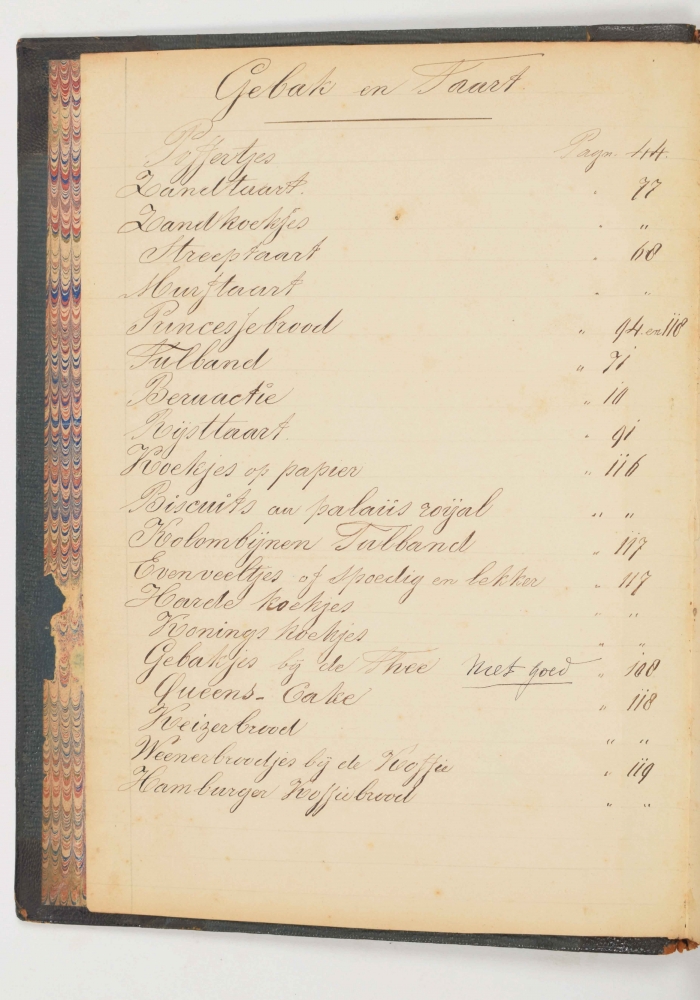 Gebak en Taart
Poffertjes Pagn. 44.
Zandtaart. " 77
Zandkoekjes " "
Streeptaart " 68
Murftaart " "
Princessebrood " 94 en 118
Tulband " 71
Beruactie " 10
Rijsttaart. " 91
Koekjes op papier " 116
Biscuits au palaüs roÿal " "
Kolombijnen Tulband " 117
Evenveeltjes of spoedig en lekker " 117
Harde koekjes " "
Konings koekjes " "
Gebakjes bij de Thee niet goed " 108
Queens-Cake " 118
Keizerbrood " "
Weenerbroodjes bij de Koffie " 119
Hamburger Koffiebrood " "